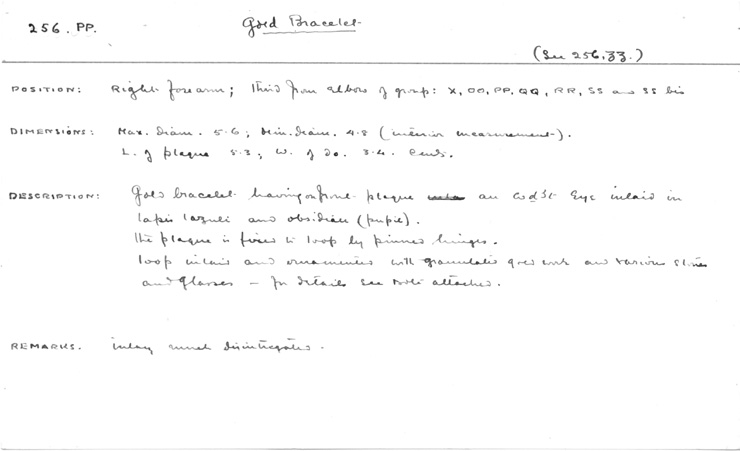 256. PP.
Gold Bracelet
(See 256,ZZ.)
POSITION: Right forearm; third from elbow of group: X, OO, PP, QQ, RR, SS and SS bis
DIMENSIONS: Max. diam. 5·6; Min. diam. 4·8 (interior measurement).
L. of plaque 5·3; W. of do. 3·4. Cents.
DESCRIPTION: Gold bracelet having on front plaque an Wdȝt Eye inlaid in
lapis lazuli and obsidian (pupil).
The plaque is fixed to loop by pinned hinges.
loop inlaid and ornamented with granulated gold work and various stones
and glasses — for details see note attached.
REMARKS. inlay much disintegrated.